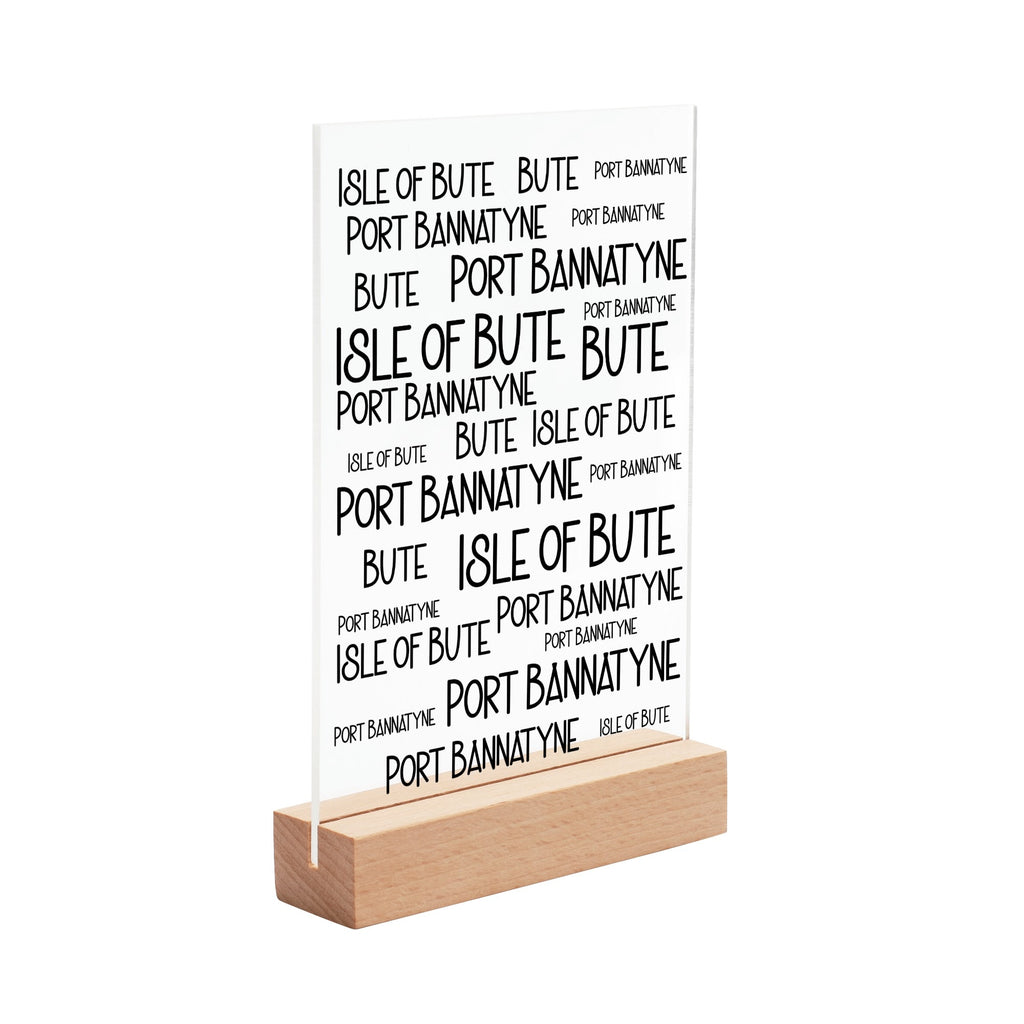 Isle of Bute Bute Port Bannatyne
Port Bannatyne Port Bannatyne
Bute Port Bannatyne
Port Bannatyne
Isle of Bute Bute
Port Bannatyne
Isle of Bute Bute Isle of Bute
Port Bannatyne Port Bannatyne
Bute Isle of Bute
Port Bannatyne Port Bannatyne
Isle of Bute Port Bannatyne
Port Bannatyne Port Bannatyne
Port Bannatyne Isle of Bute